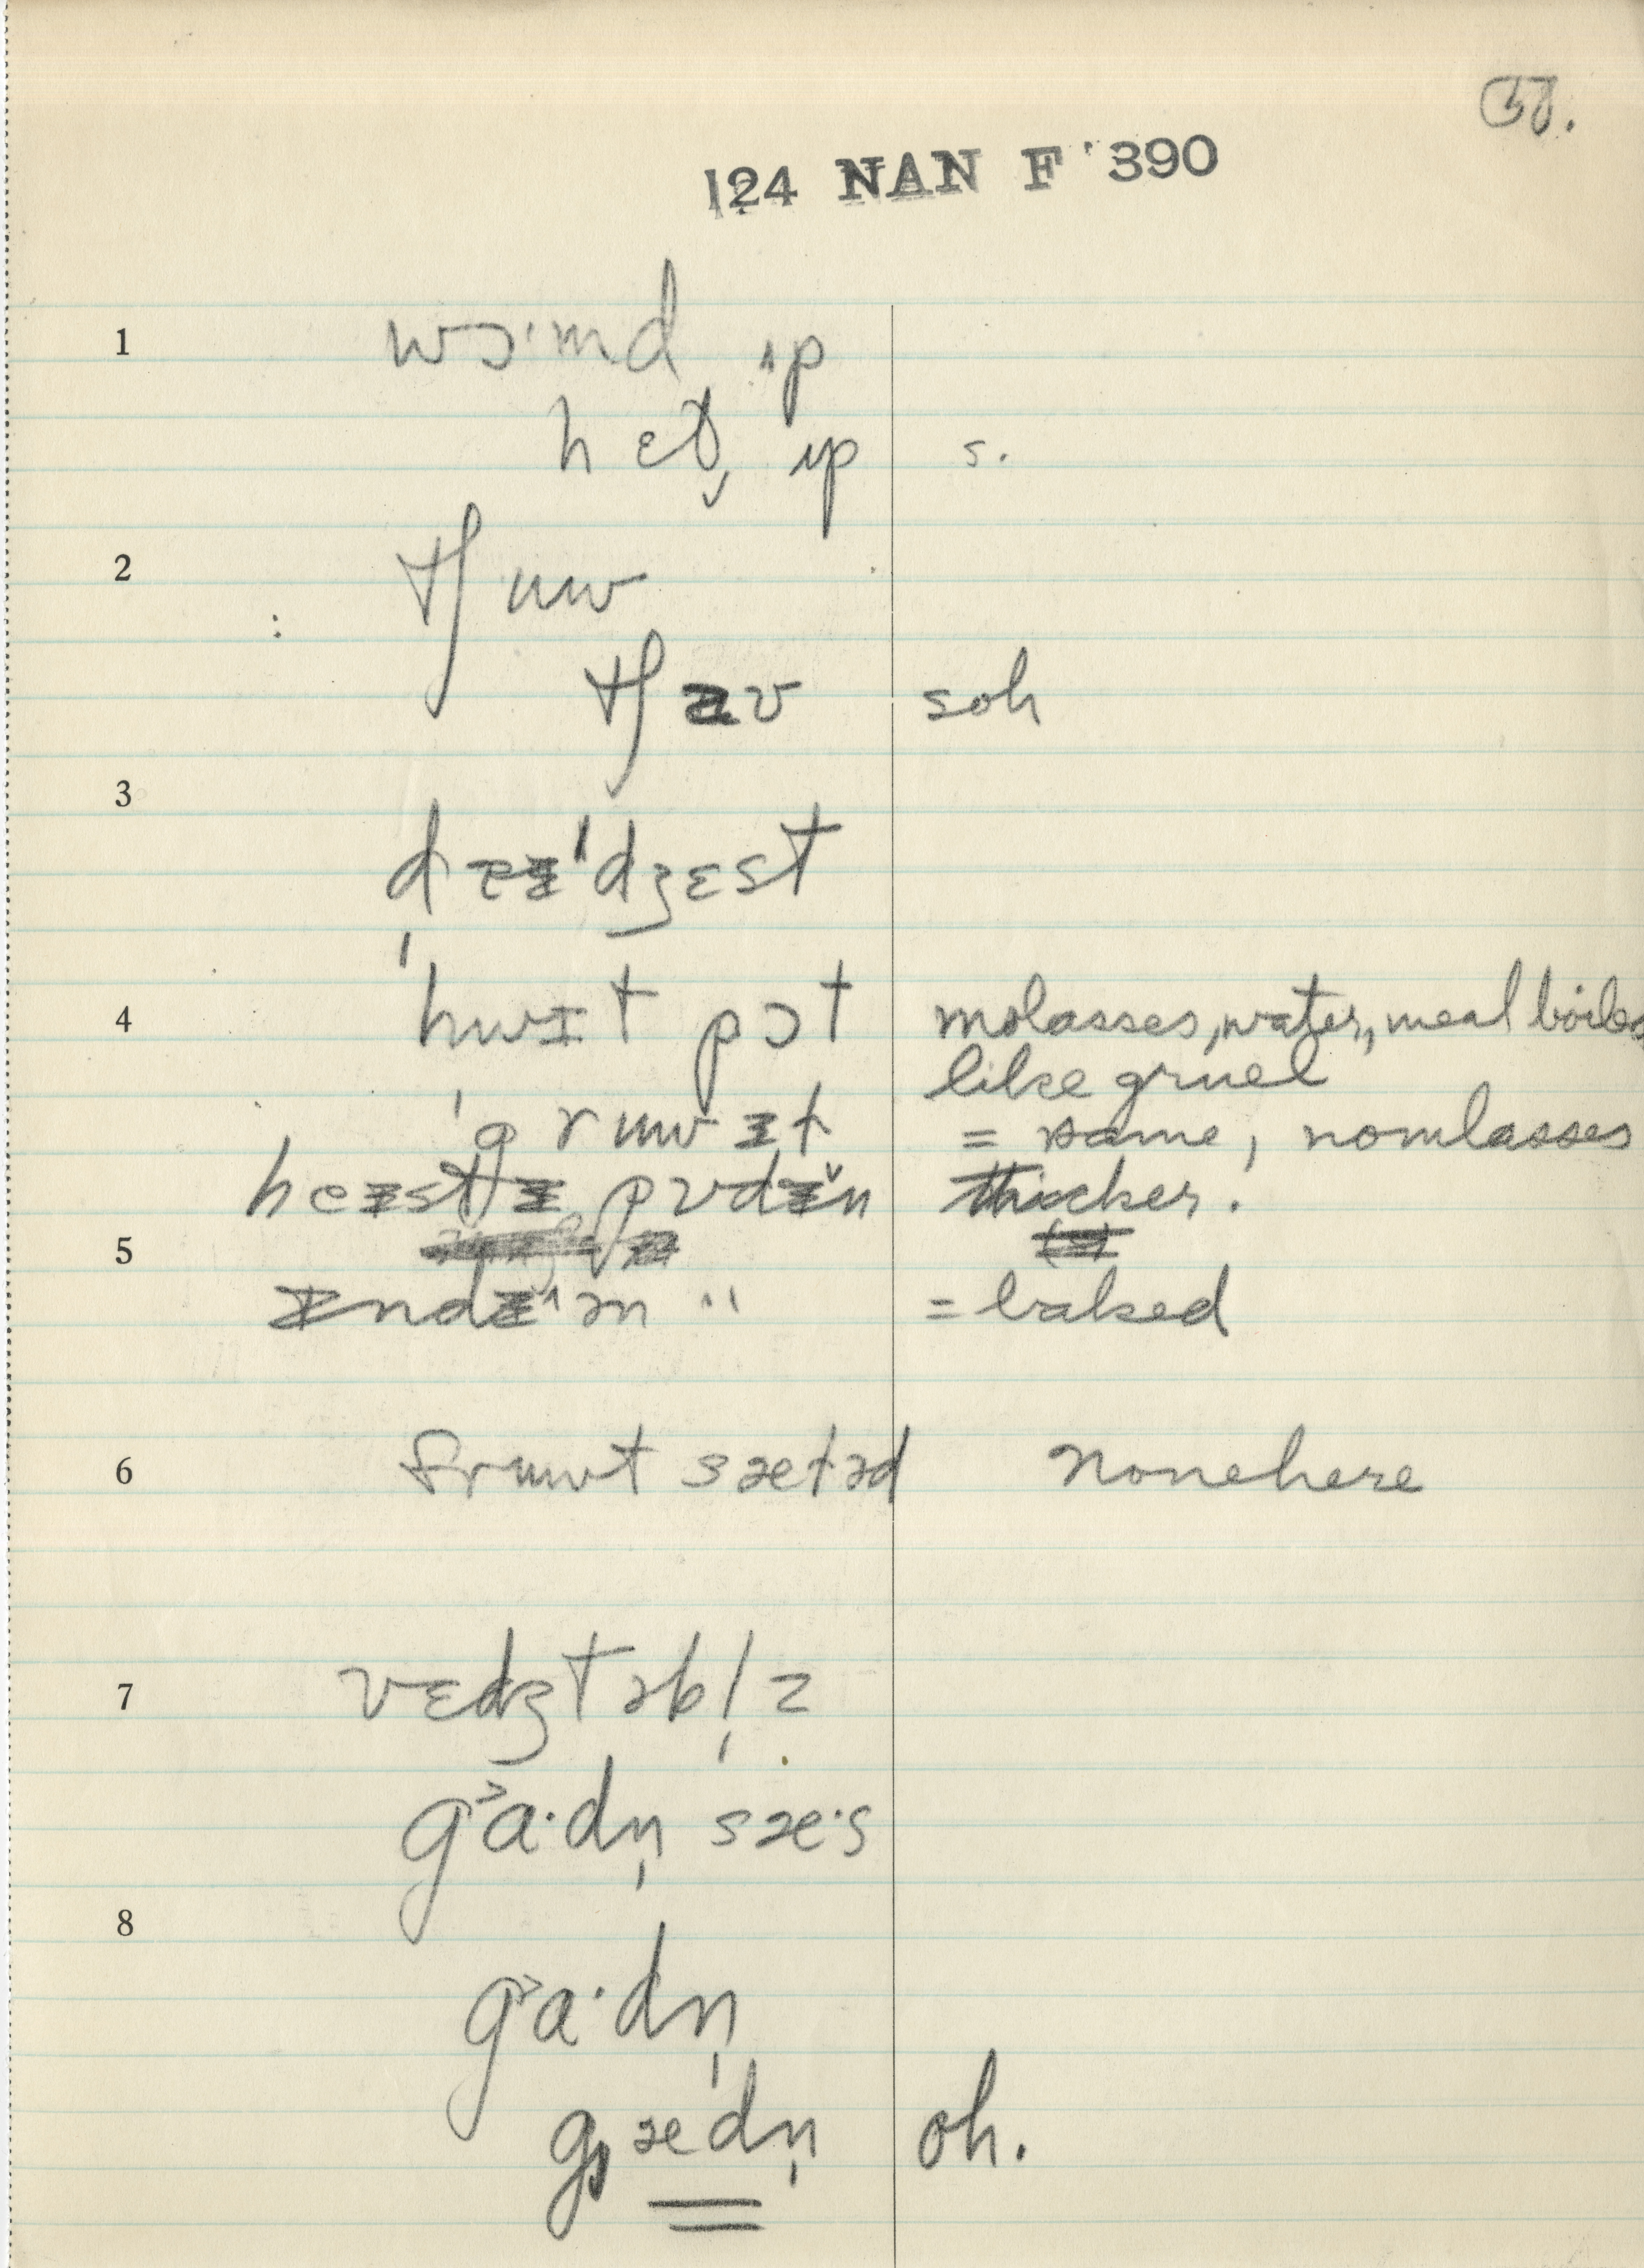 124 NAN F 390
1
wɔ·md ʌp
hɛt̬ ʌp s.
2
tʃuw
tʃɑv soh
3
dɪɪˈdʒɛst
4
ˈhwɪt pɔt molasses, water, meal boiled
like gruel
ˈgruwɪt = same, nomlasses
heɪstɪ pʊdɪ̆n thicker.
5
ɪndɪˈən " = baked
6
fruwt sætəd nonehere
7
vɛdʒtəbl̩z
g˃a·dn̩ sæ·s
8
g˃a·dn̩
gædn̩ oh.